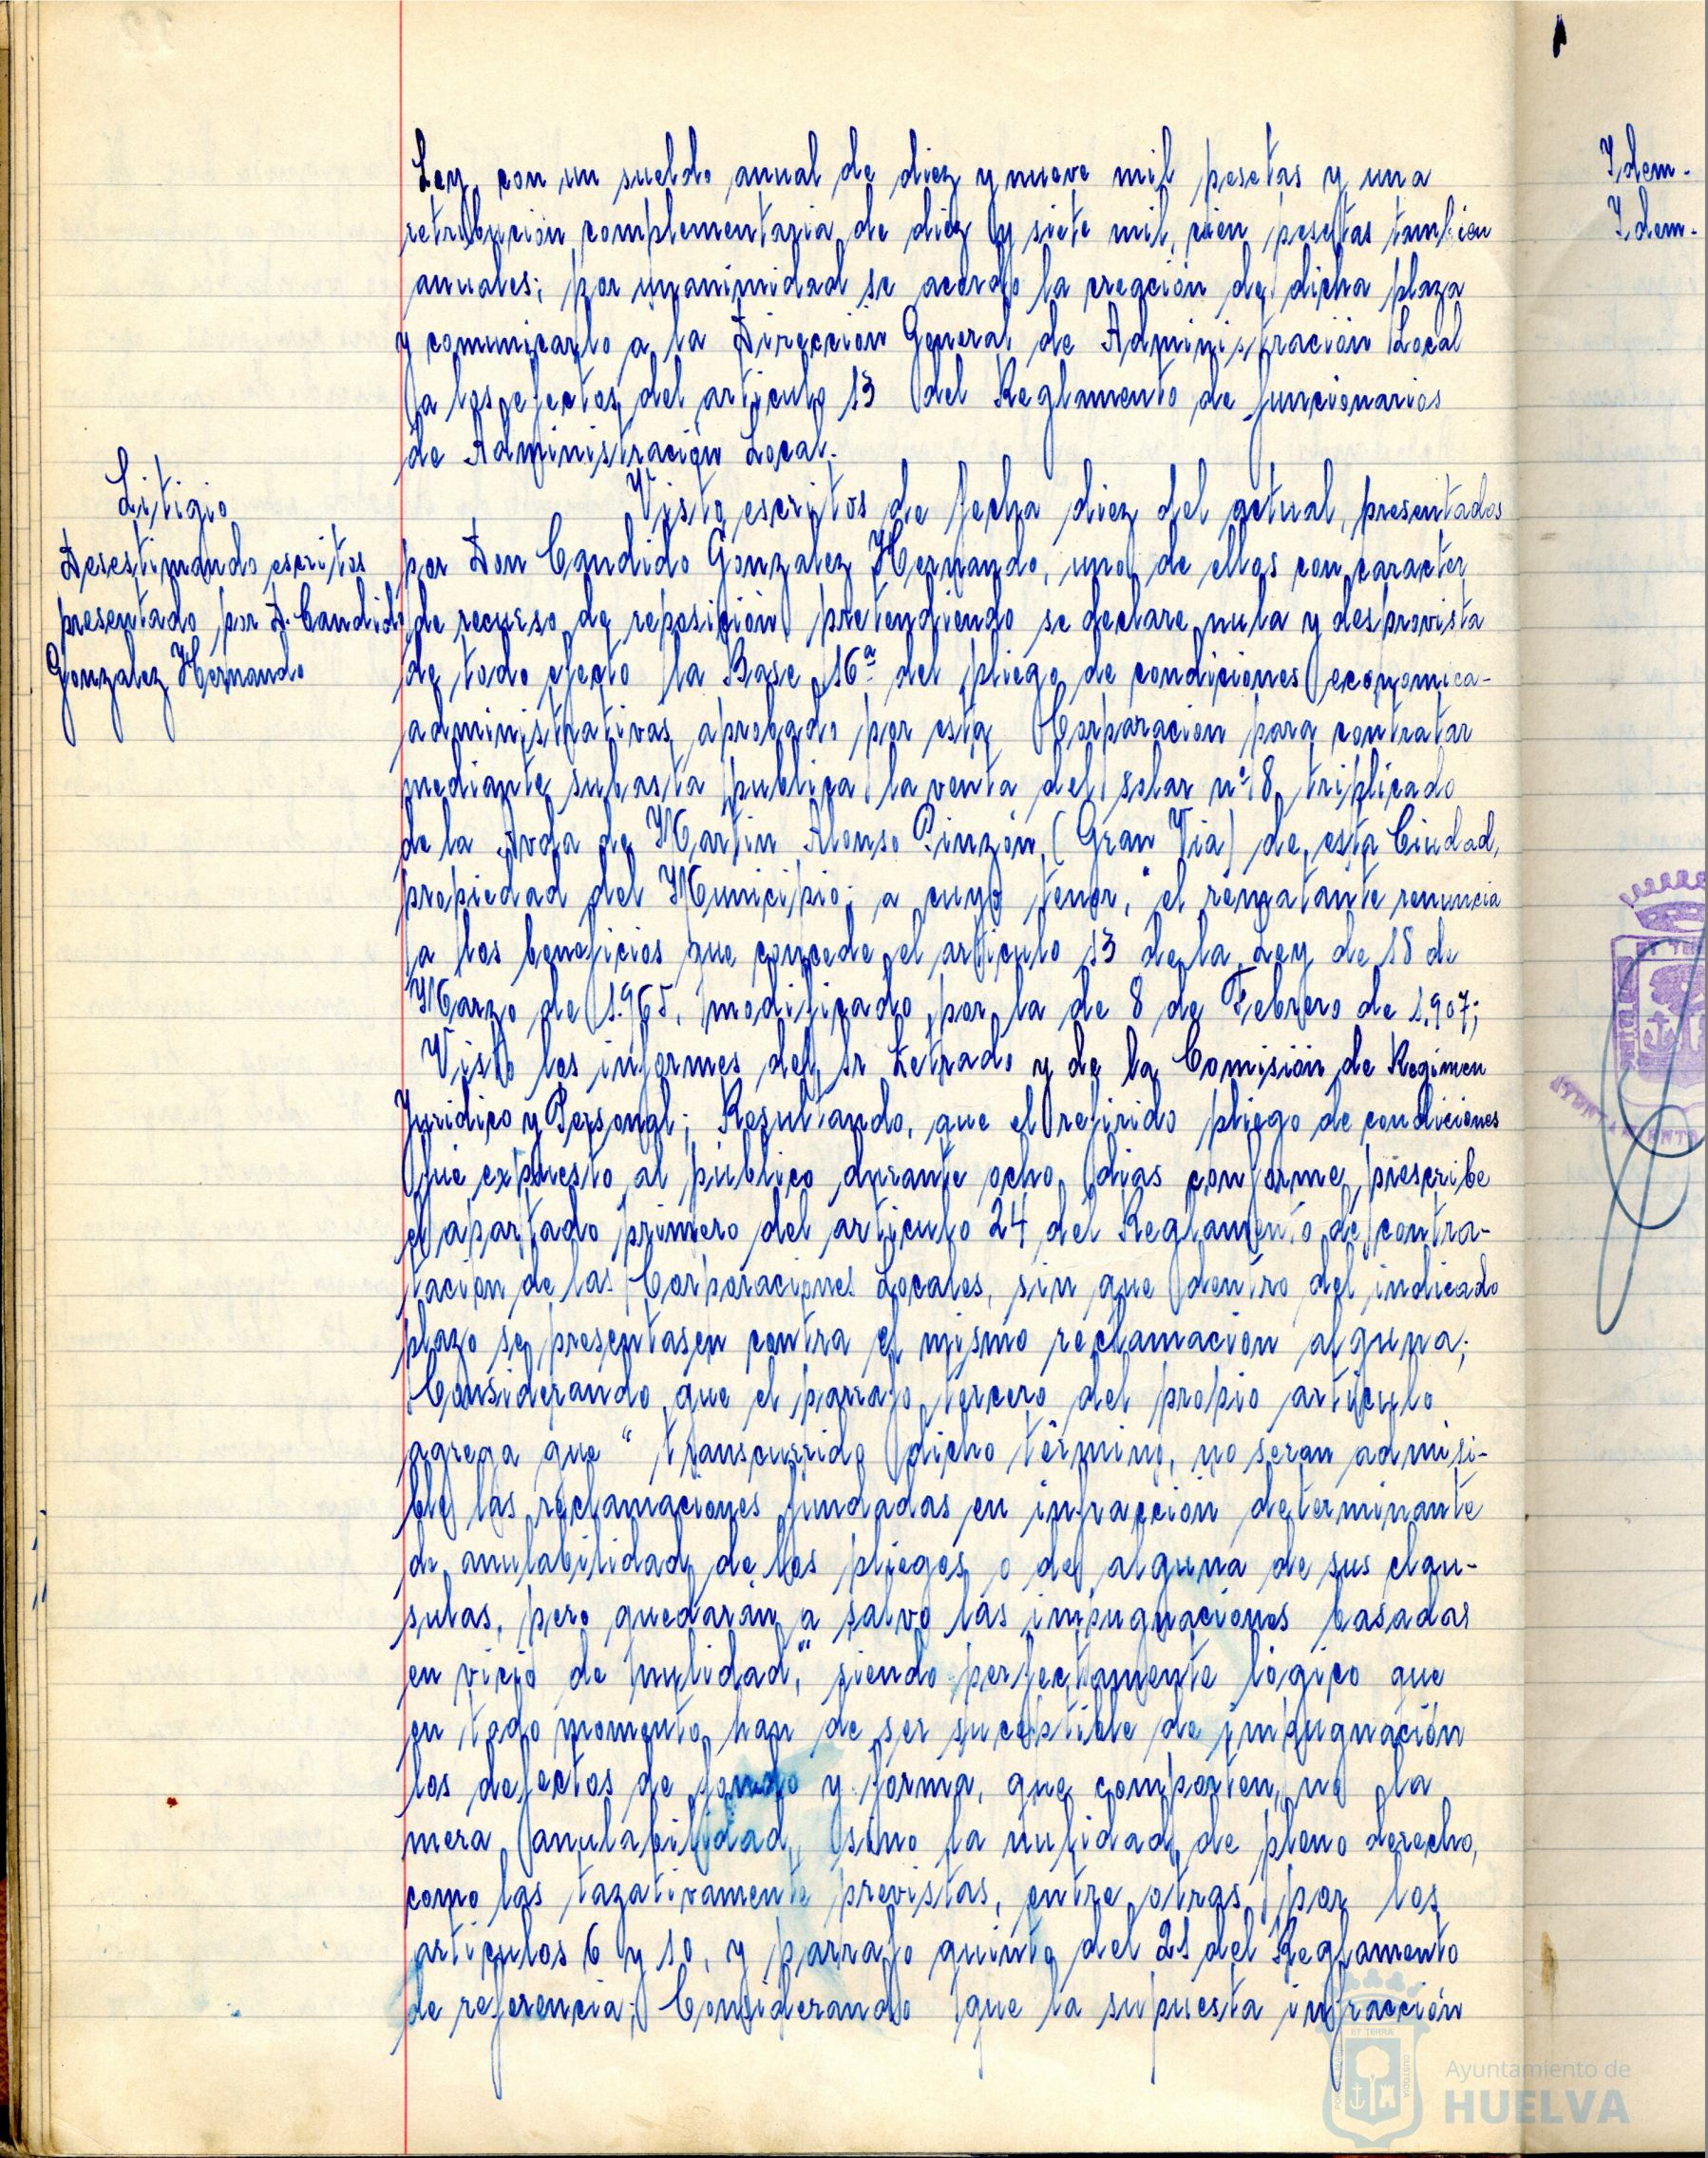 Ley, con un sueldo anual de diez y nueve mil pesetas y una
retribución complementaria de diez y siete mil, cien pesetas tambien
anuales; por unanimidad se acordó la creación de dicha plaza
y comunicarlo a la Dirección General de Administración Local
a los efectos del articulo 13 del Reglamento de funcionarios
de Administración Local.
Litigio
Desestimando escritos
presentado por D. Candido
Gonzalez Hernando
Visto escritos de fecha diez del actual, presentados
por Don Candido Gonzalez Hernando, uno de ellos con caracter
de recurso de reposición pretendiendo se declare nula y desprovista
de todo efecto la Base 16ª del pliego de condiciones economica-
administrativas aprobado por esta Corparación para contratar
mediante subasta publica la venta del solar nº 8 triplicado
de la Avda de Martin Alonso Pinzón, (Gran Via) de esta Ciudad,
propiedad del Municipio; a cuyo tenor, "el rematante renuncia
a los beneficios que concede el articulo 13 de la Ley de 18 de
Marzo de 1.965, modificado por la de 8 de Febrero de 1.907;
Visto los informes del Sr Letrado y de la Comisión de Regimen
Juridico y Personal; Resultando, que el referido pliego de condiciones
fue expuesto al público durante ocho dias conforme prescribe
el apartado primero del articulo 24 del Reglamento de contra-
tación de las Corporaciones Locales, sin que dentro del indicado
plazo se presentasen contra el mismo reclamación alguna;
Considerando que el parrafo tercero del propio articulo
agrega que "transcurrido dicho término, no seran admisi-
ble las reclamaciones fundadas en infracción determinante
de anulabilidad de los pliegos o de alguna de sus clau-
sulas, pero quedarán a salvo las impugnaciones basadas
en vicio de nulidad," siendo perfectamente lógico que
en todo momento han de ser suceptible de impugnación
los defectos de fondo y forma, que comporten, no la
mera anulabilidad, sino la nulidad de pleno derecho,
como las tazativamente previstas, entre otras, por los
articulos 6 y 10, y parrafo quinto del 21 del Reglamento
de referencia; Considerando que la supuesta infracción
Idem.
Idem.
Ayuntamiento de
HUELVA